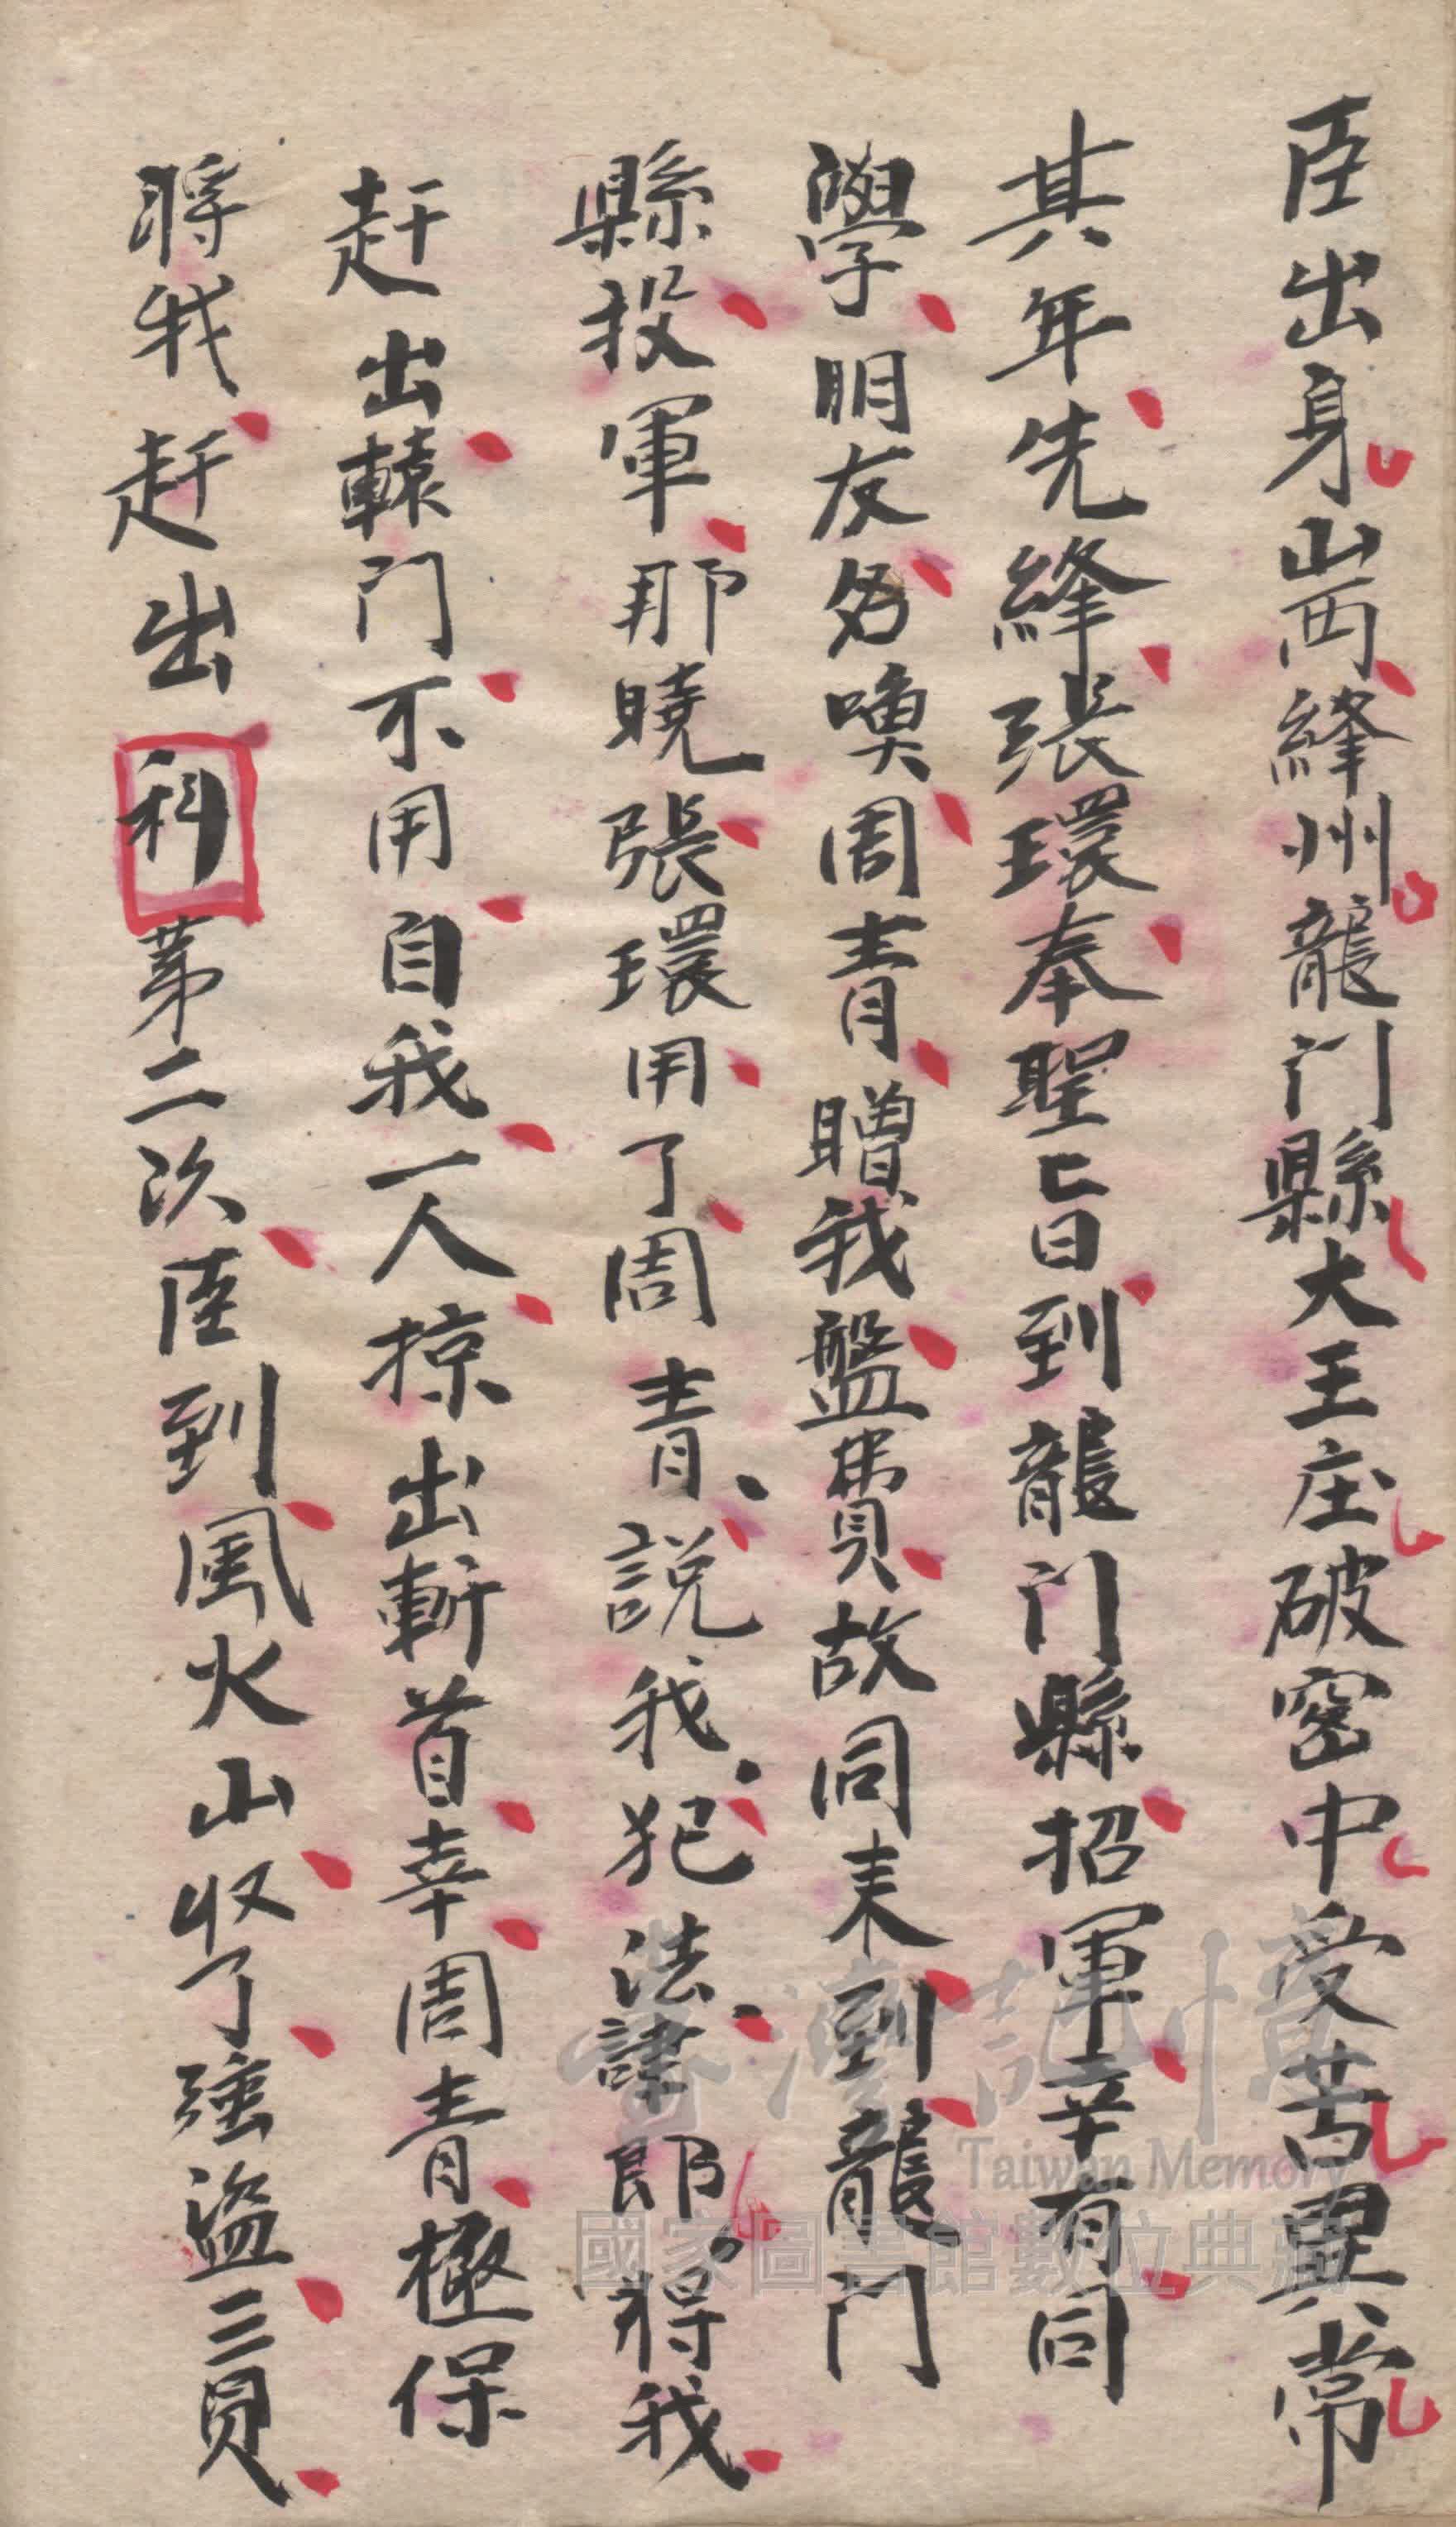 臣出身山西絳州龍门縣大王庄破窑中受苦異常
其年先絳張環奉聖旨到龍门縣招軍幸有同
學朋友名喚周青贈我盤費故同来到龍门
縣投軍那曉張環用了周青說我犯法諱郎將我
赶出轅门不用自我一人掠出斬首幸周青極保
將我赶出科第二次臣到風火山収了强盗三員
臺灣記憶
Taiwan Memory
國家圖書館數位典藏